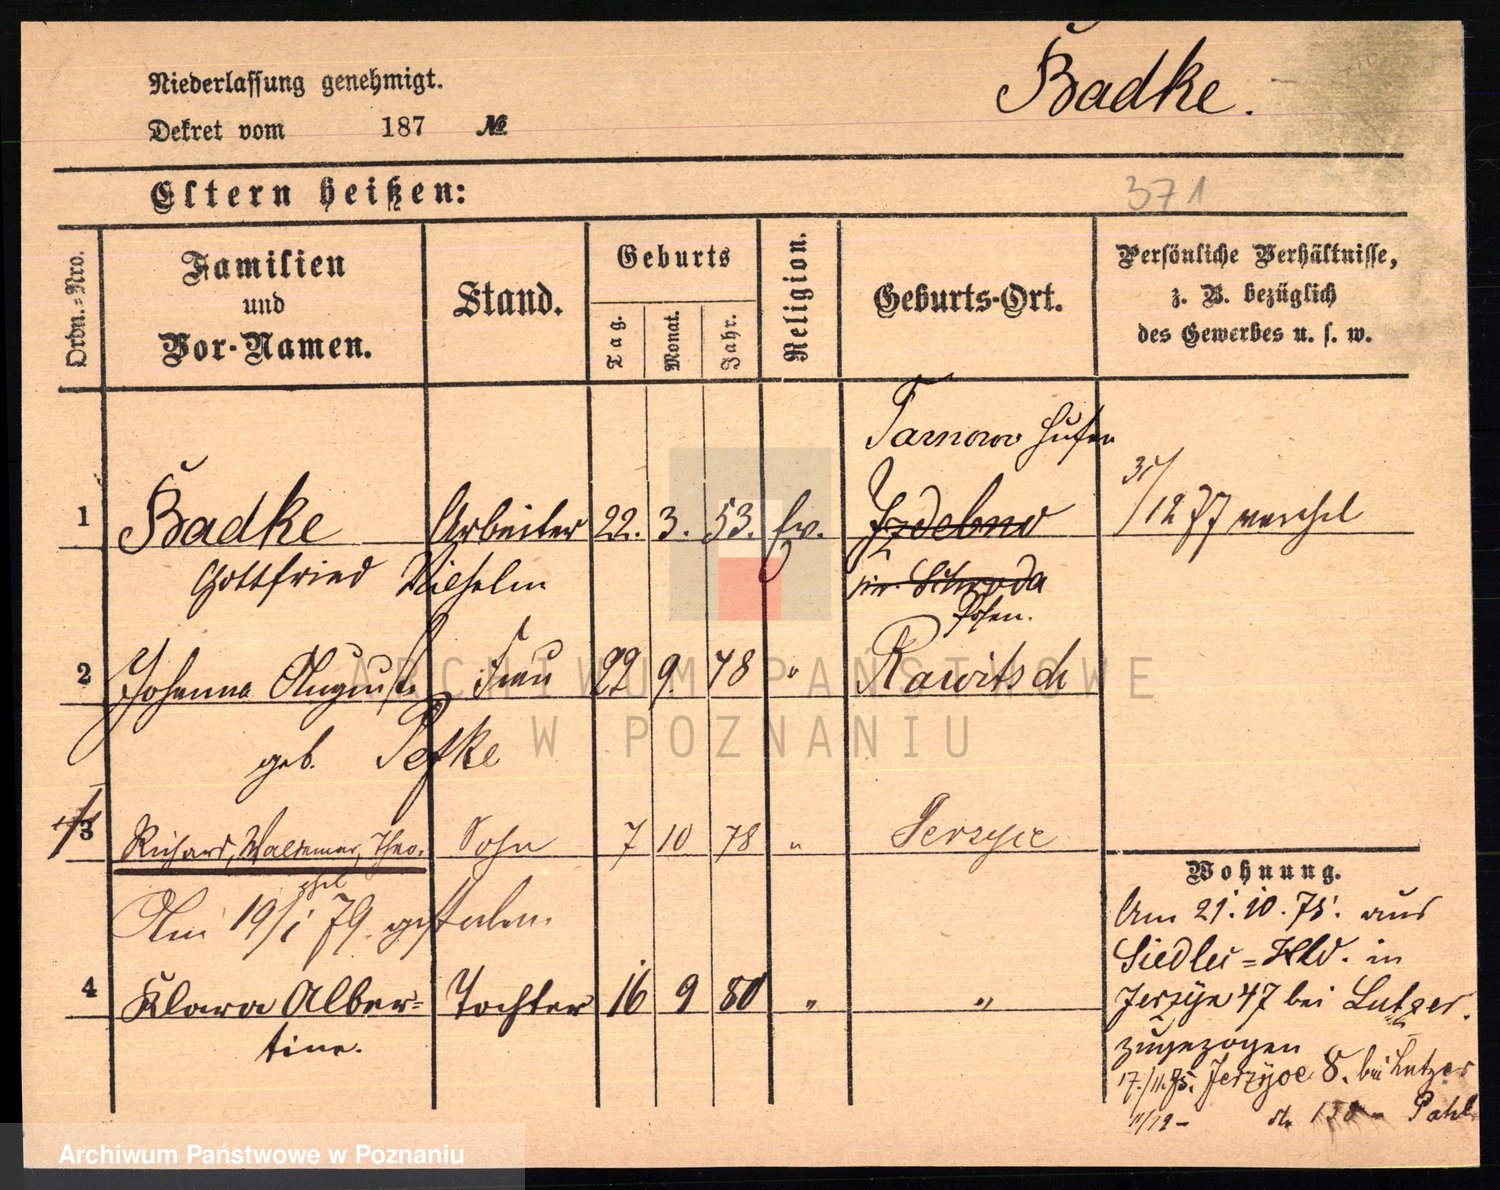 Niederlassung genehmigt.
Dekret vom 187 №
Badke.
Eltern heißen:
371
Ordn.-Nro.
Familien
und
Vor-Namen.
Stand.
Geburts
Tag.
Monat.
Jahr.
Religion.
Geburts-Ort.
Persönliche Verhältnisse,
z. B. bezüglich
des Gewerbes u. s. w.
Tarnowo Hufen
1 Badke Arbeiter 22. 3. 53. Ev. Izdebno 31/12 77
Gottfried Wilhelm
Schroda
Posen.
2 Johanna August. Frau 22 9 48 " Rawitsch
geb. Pefke
3 Richard, Waldemar, Theo- Sohn 7 10 78 " Jerzyce
phil
Am 19/1 79. gestorben.
4 Klara Alber= Tochter 16 9 80 " "
tine.
Wohnung.
Am 21. 10. 75. aus
Siedlec=Hld. in
Jerzyce 47 bei Lutzer.
zugezogen
17./11. 75. Jerzyce 8. bei Lutzer
11/12 -
ARCHIWUM PAŃSTWOWE
W POZNANIU
Archiwum Państwowe w Poznaniu